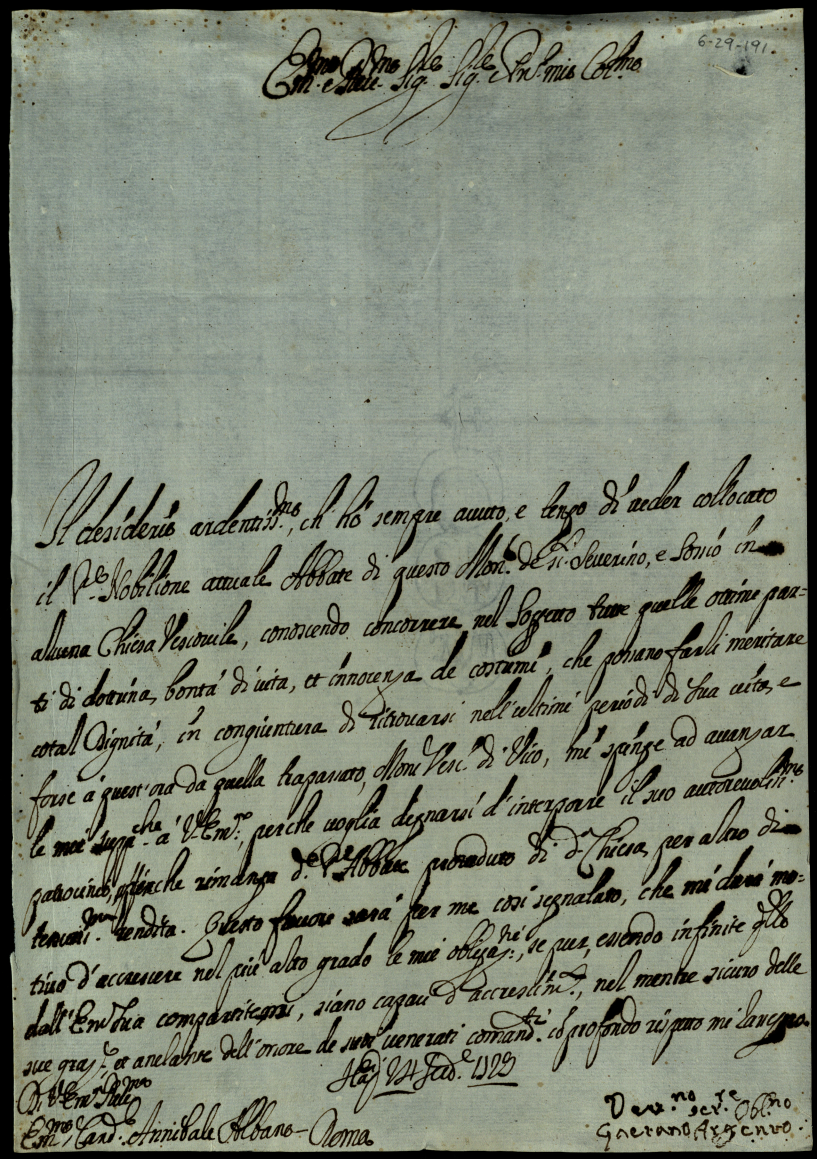 6-29-191.
Em.mo e Rev.mo Sig.re Sig.re e Pn̄e mio Col.mo
Il desiderio ardentiss.mo, ch' hò sempre avuto, e tengo di veder collocato
il P.re Nobilione attuale Abbate di questo Mon.ro de S.ti Severino, e Sossio in
alcuna Chiesa Vescovile, conoscendo concorrere nel Soggetto tutte quelle ottime par=
ti di dottrina, bontà di vita, et innocenza de costumi, che possano farli meritare
cotal Dignità, in congiuntura di ritrovarsi nell'ultimi periodi di sua vita, e
forse à quest'ora da quella trapassato, Mons.r Vesc.o di Vico, mi spinge ad avanzar
le mie supp.che à V. Em.za, perche voglia degnarsi d'interporre il suo autorevoliss.mo
patrocinio, affinche rimanga d.o P.re Abbate proveduto di d.a Chiesa, per altro di
tenuiss.ma rendita. Questo favore sarà per me così segnalato, che mi darà mo=
tivo d'accrescere nel più alto grado le mie obligaz.ni, se pur, essendo infinite q̄lle
dall'Em.za Sua compartitemi, siano capaci d'accrescim.to, nel mentre sicuro delle
sue graz.e, et anelante dell'onore de suoi venerati comand.ti, cō profondo rispetto mi rassegno
Nap. 24 1723
Di V. Em.za Rev.ma
Em.mo Card.le Annibale Albano - Roma
Dev.mo ser.re Obl.mo
Gaetano Argento.